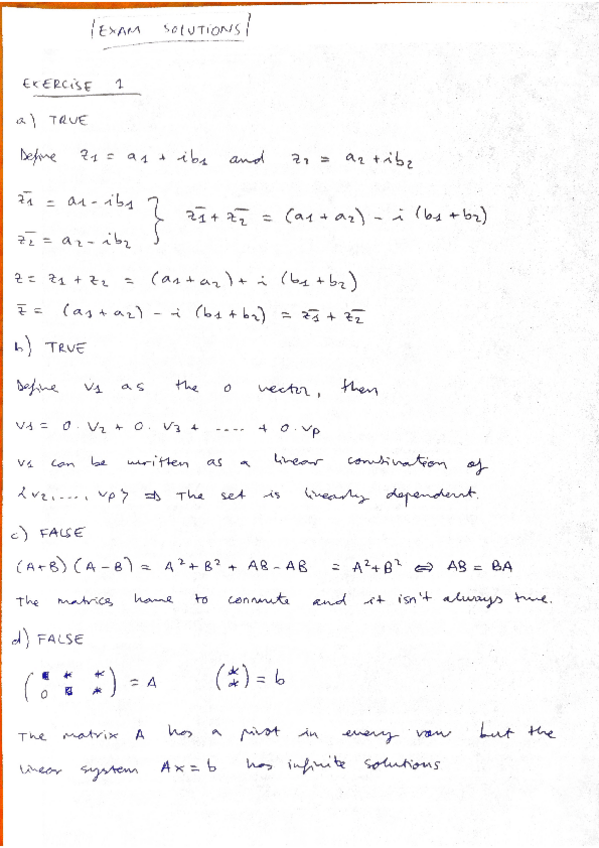 EXAM SOLUTIONS
EXERCISE 1
a) TRUE
Define z1 = a1 + ib1 and z2 = a2 + ib2
z̄1 = a1 - ib1 } z̄1 + z̄2 = (a1 + a2) - i (b1 + b2)
z̄2 = a2 - ib2
z = z1 + z2 = (a1 + a2) + i (b1 + b2)
z̄ = (a1 + a2) - i (b1 + b2) = z̄1 + z̄2
b) TRUE
Define v1 as the 0 vector, then
v1 = 0 · v2 + 0 · v3 + .... + 0 · vp
v1 can be written as a linear combination of
{v2, ...., vp} ⇒ The set is linearly dependent.
c) FALSE
(A+B) (A-B) = A² + B² + AB - AB = A² + B² ⇔ AB = BA
The matrices have to commute and it isn't always true.
d) FALSE
(■ * *
0 ■ *) = A (*
*) = b
The matrix A has a pivot in every row but the
linear system Ax = b has infinite solutions